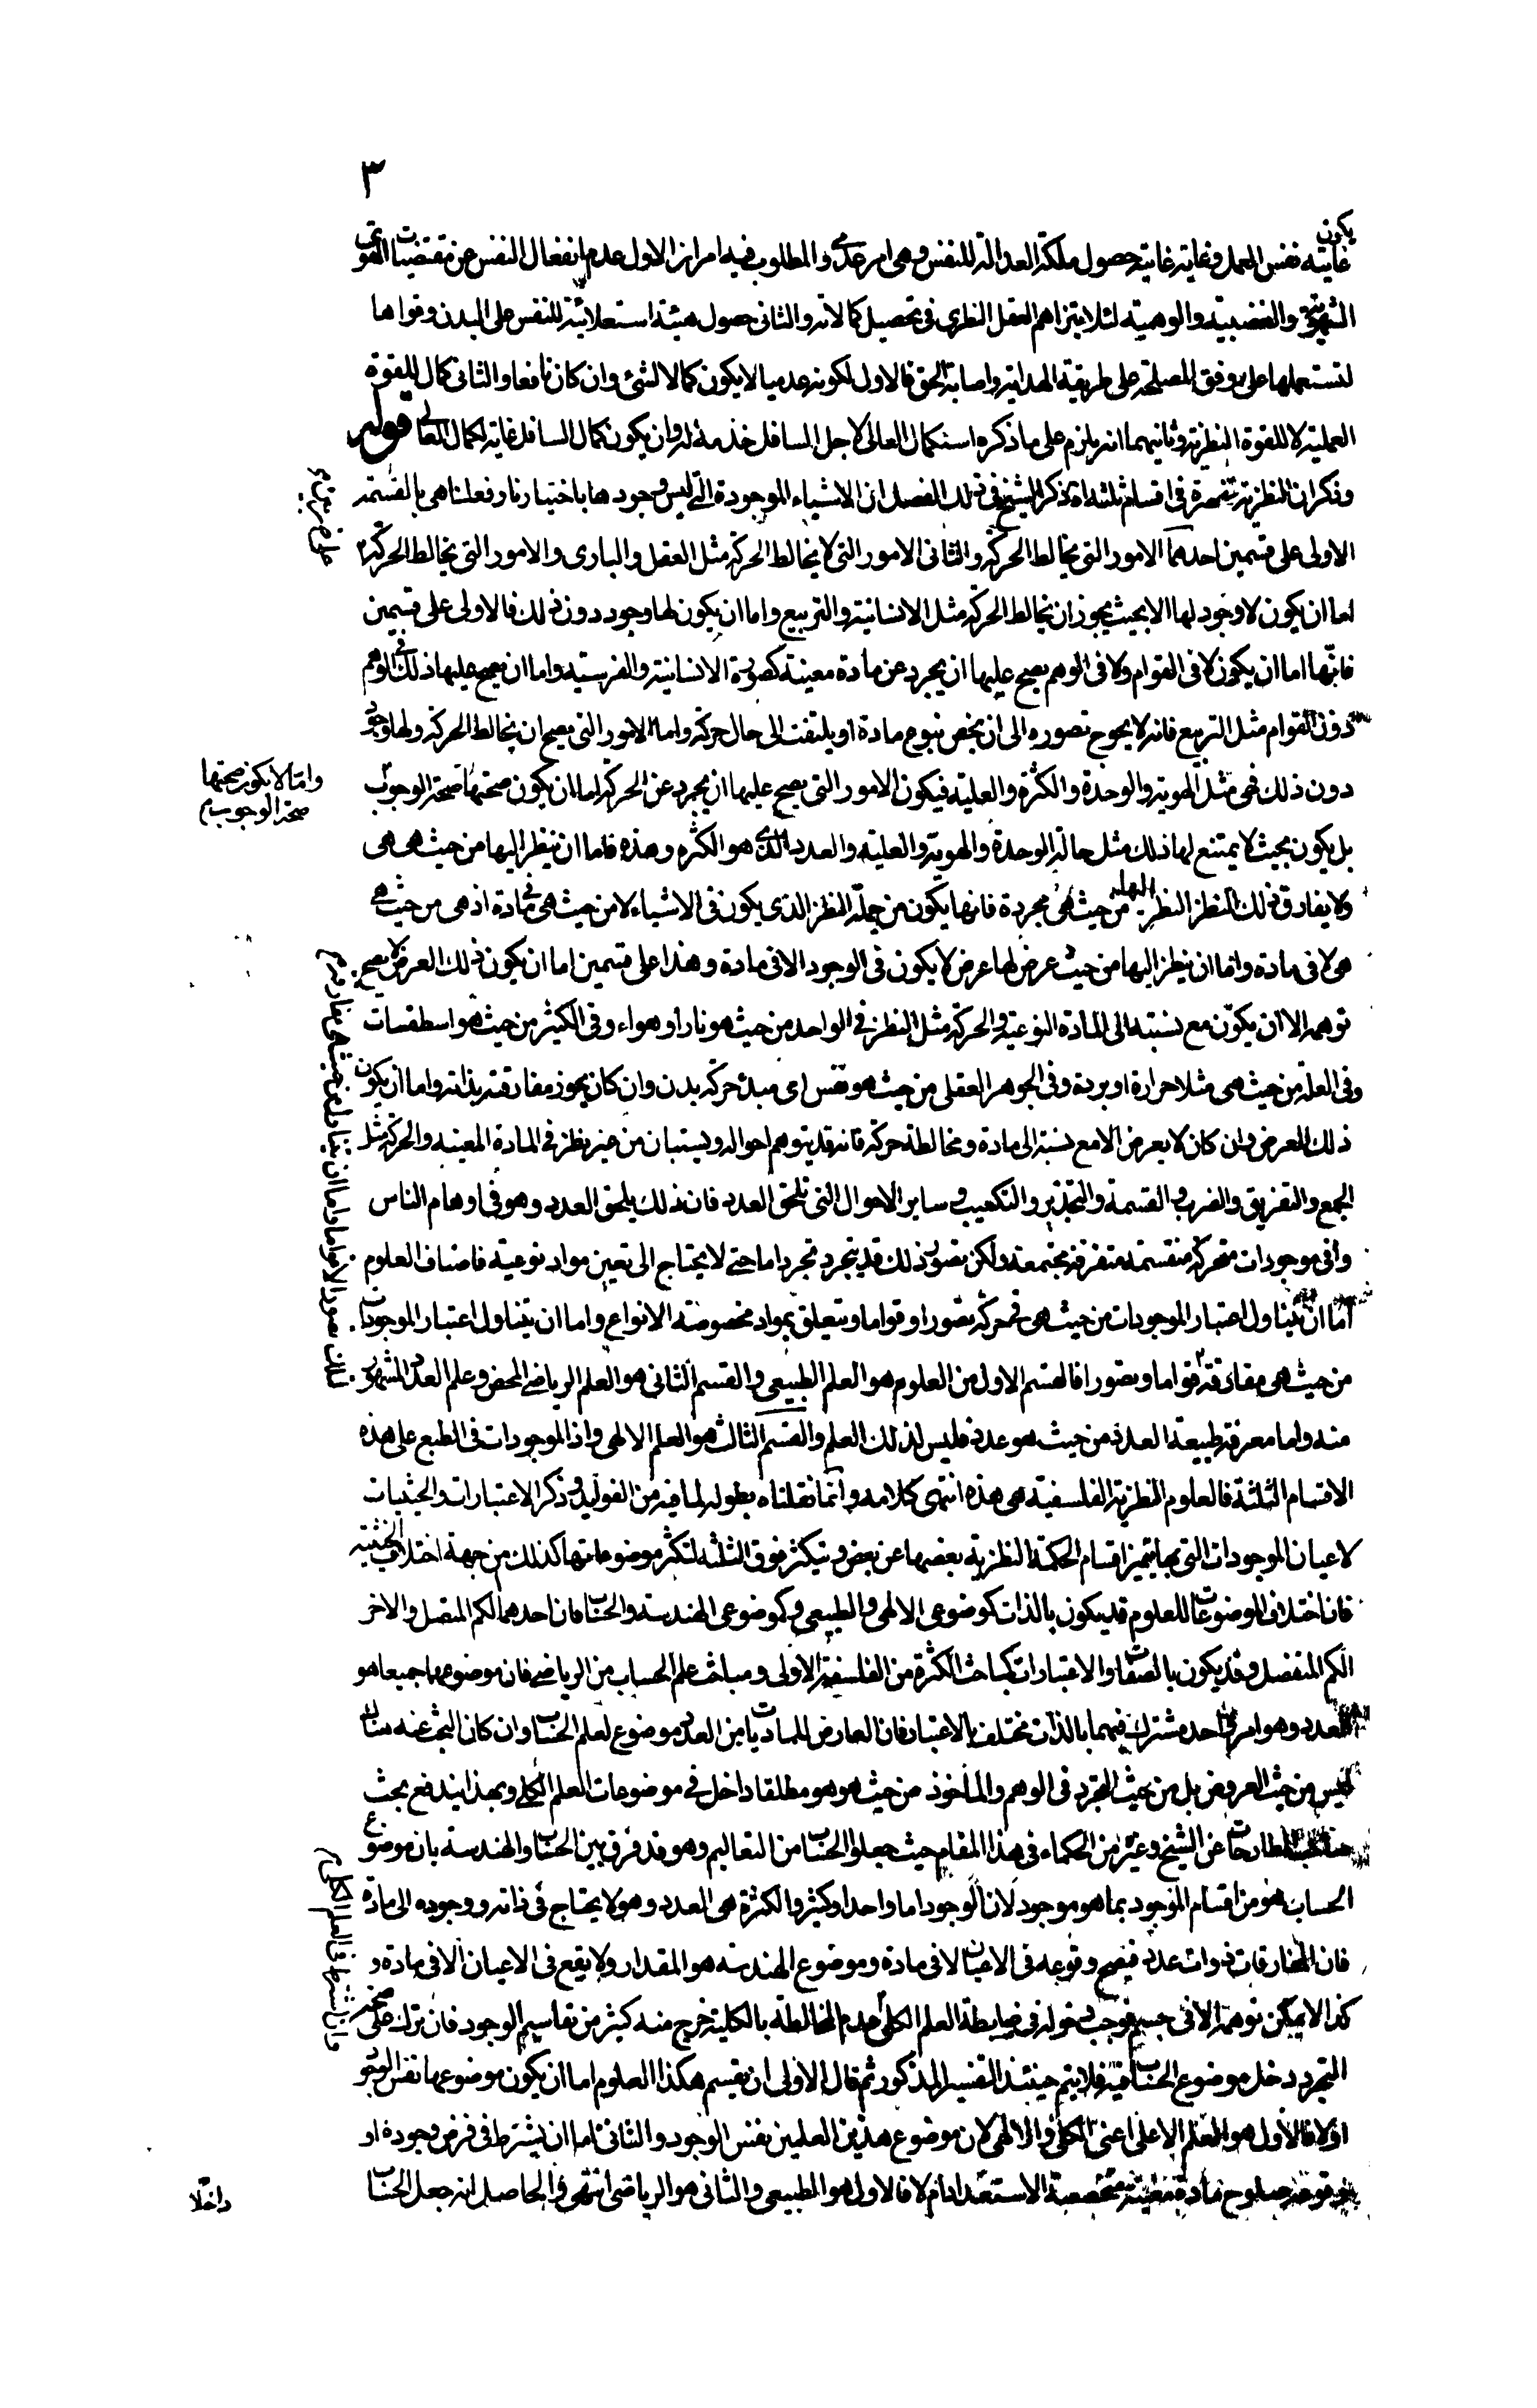 ٣
يكون
غايته نفس العمل وغاية غايته حصول ملكة العدالة للنفس وهى امر عدمى والمطلوب فيه امران الاول عدم انفعال النفس عن مقتضيات القوى
الشهوية والغضبية والوهمية لئلا يتزاحم العقل النظرى فى تحصيل كمالاته والثانى حصول هيئة استعلائية للنفس على البدن وقواها
لتستعملها على وفق المصلحة على طريقة الهداية واصابة الحق فالاول لكونه عدميا لا يكون كمالا لشئ وان كان نافعا والثانى كمال للقوة
العملية لا للقوة النظرية وثانيهما انه يلزم على ما ذكره استكمال العالى لاجل السافل خدمة له وان يكون كمال السافل غاية لكمال العالى قوله
وذكر ان النظرية منحصرة فى اقسام ثلثة اه ذكر الشيخ فى ذلك الفصل ان الاشياء الموجودة التى ليس وجودها باختيارنا وفعلنا هى بالقسمة
الاولى على قسمين احدهما الامور التى يخالط الحركة والثانى الامور التى لا يخالط الحركة مثل العقل والبارى والامور التى يخالط الحركة
اما ان يكون لا وجود لها الا بحيث يجوز ان يخالط الحركة مثل الانسانية والتربيع واما ان يكون لها وجود دون ذلك فالاولى على قسمين
فانها اما ان يكون لا فى القوام ولا فى الوهم يصح عليها ان يجرد عن مادة معينة كصورة الانسانية والفرسية واما ان يصح عليها ذلك فى الوهم
دون القوام مثل التربيع فانه لا يحوج تصوره الى ان يخص بنوع مادة او يلتفت الى حال حركة واما الامور التى يصح ان يخالط الحركة ولها وجود
دون ذلك فهى مثل الهوية والوحدة والكثرة والعلية فيكون الامور التى يصح عليها ان يجرد عن الحركة اما ان يكون صحتها صحة الوجوب
واما لا يكون صحتها
صحة الوجوب م
بل يكون بحيث لا يمتنع لها ذلك مثل حالة الوحدة والهوية والعلية والعدد الذى هو الكثرة وهذه فاما ان ينظر اليها من حيث هى هى
ولا يفارق ذلك النظر النظر اليها من حيث هى مجردة فانها يكون من جملة النظر الذى يكون فى الاشياء لا من حيث هى فى مادة اذ هى من حيث هى
هى لا فى مادة واما ان ينظر اليها من حيث عرض لها عرض لا يكون فى الوجود الا فى مادة وهذا على قسمين اما ان يكون ذلك العرض لا يصح
توهمه الا ان يكون مع نسبته الى المادة النوعية والحركة مثل النظر فى الواحد من حيث هو نار او هواء وفى الكثير من حيث هو اسطقسات
وفى العلة من حيث هى مثلا حرارة او برودة وفى الجوهر العقلى من حيث هو نفس اى مبدء حركة بدن وان كان يجوز مفارقته بذاته واما ان يكون
ذلك العرض وان كان لا يعرض الا مع نسبة الى مادة ومخالطة حركة فانه قد يتوهم احواله ويستبان من غير نظر فى المادة المعينة والحركة مثل
الجمع والتفريق والضرب والقسمة والتجذير والتكعيب وساير الاحوال التى تلحق العدد فان ذلك يلحق العدد وهو فى اوهام الناس
وفى موجودات متحركة منقسمة متفرقة مجتمعة ولكن تصور ذلك قد يتجرد تجردا ما حتى لا يحتاج الى تعيين مواد نوعية فاصناف العلوم
اما ان يتناول اعتبار الموجودات من حيث هى فى حركة تصورا وقواما ويتعلق بمواد مخصوصة الانواع واما ان يتناول اعتبار الموجودات
من حيث هى مفارقة قواما وتصورا فالقسم الاول من العلوم هو العلم الطبيعى والقسم الثانى هو العلم الرياضى المحض وعلم العدد المشهور
منه واما معرفة طبيعة العدد من حيث هو عدد فليس لذلك العلم والقسم الثالث هو العلم الالهى واذ الموجودات فى الطبع على هذه
الاقسام الثلثة فالعلوم النظرية الفلسفية هى هذه انتهى كلامه وانما نقلناه بطوله لما فيه من الفوائد وذكر الاعتبارات والحيثيات
لاعيان الموجودات التى بها يتميز اقسام الحكمة النظرية بعضها عن بعض ويتكثر فوق الثلثة لتكثر موضوعاتها كذلك من جهة اختلاف الحيثية
فان اختلاف الموضوعات للعلوم قد يكون بالذات كموضوعى الالهى والطبيعى وكموضوعى الهندسة والحساب فان احدهما الكم المتصل والاخر
الكم المنفصل وقد يكون بالصفات او الاعتبارات كمباحث الكثرة من الفلسفة الاولى ومباحث علم الحساب من الرياضى فان موضوعهما جميعا هو
العدد وهو امر واحد مشترك فيهما بالذات مختلف بالاعتبار فان العارض للماديات من العدد موضوع لعلم الحساب وان كان البحث عنه هناك
ليس من حيث العروض بل من حيث التجرد فى الوهم والمأخوذ من حيث هو هو مطلقا داخل فى موضوعات العلم الكلى وبهذا يندفع بحث
صاحب المطارحات عن الشيخ وغيره من الحكماء فى هذا المقام حيث جعلوا الحساب من التعاليم وهو قد فرق بين الحساب والهندسة بان موضوع
الحساب هو من اقسام الموجود بما هو موجود لان الوجود اما واحد او كثير والكثرة هى العدد وهو لا يحتاج فى ذاته ووجوده الى مادة
فان المفارقات ذوات عدد فيصح وقوعه فى الاعيان لا فى مادة وموضوع الهندسة هو المقدار ولا يقع فى الاعيان الا فى مادة و
كذا لا يمكن توهمه الا فى جسم فوجب دخوله فى ضابطة العلم الكلى عدم المخالطة بالكلية خرج منه كثير من تقاسيم الوجود فان ترك على صحة
التجرد دخل موضوع الحساب فيه فلا يتم حينئذ التقسيم المذكور ثم قال الاولى ان يقسم هكذا العلوم اما ان يكون موضوعها نفس الوجود
او لا فالاول هو العلم الاعلى اعنى الكلى والالهى لان موضوع هذين العلمين نفس الوجود والثانى اما ان يشترط فى فرض وجوده او
وقوعه صلوح مادة معينة متخصصة الاستعداد ام لا فالاول هو الطبيعى والثانى هو الرياضى انتهى والحاصل انه جعل الحساب
داخلا
فان شرط فى العلم الكلى م